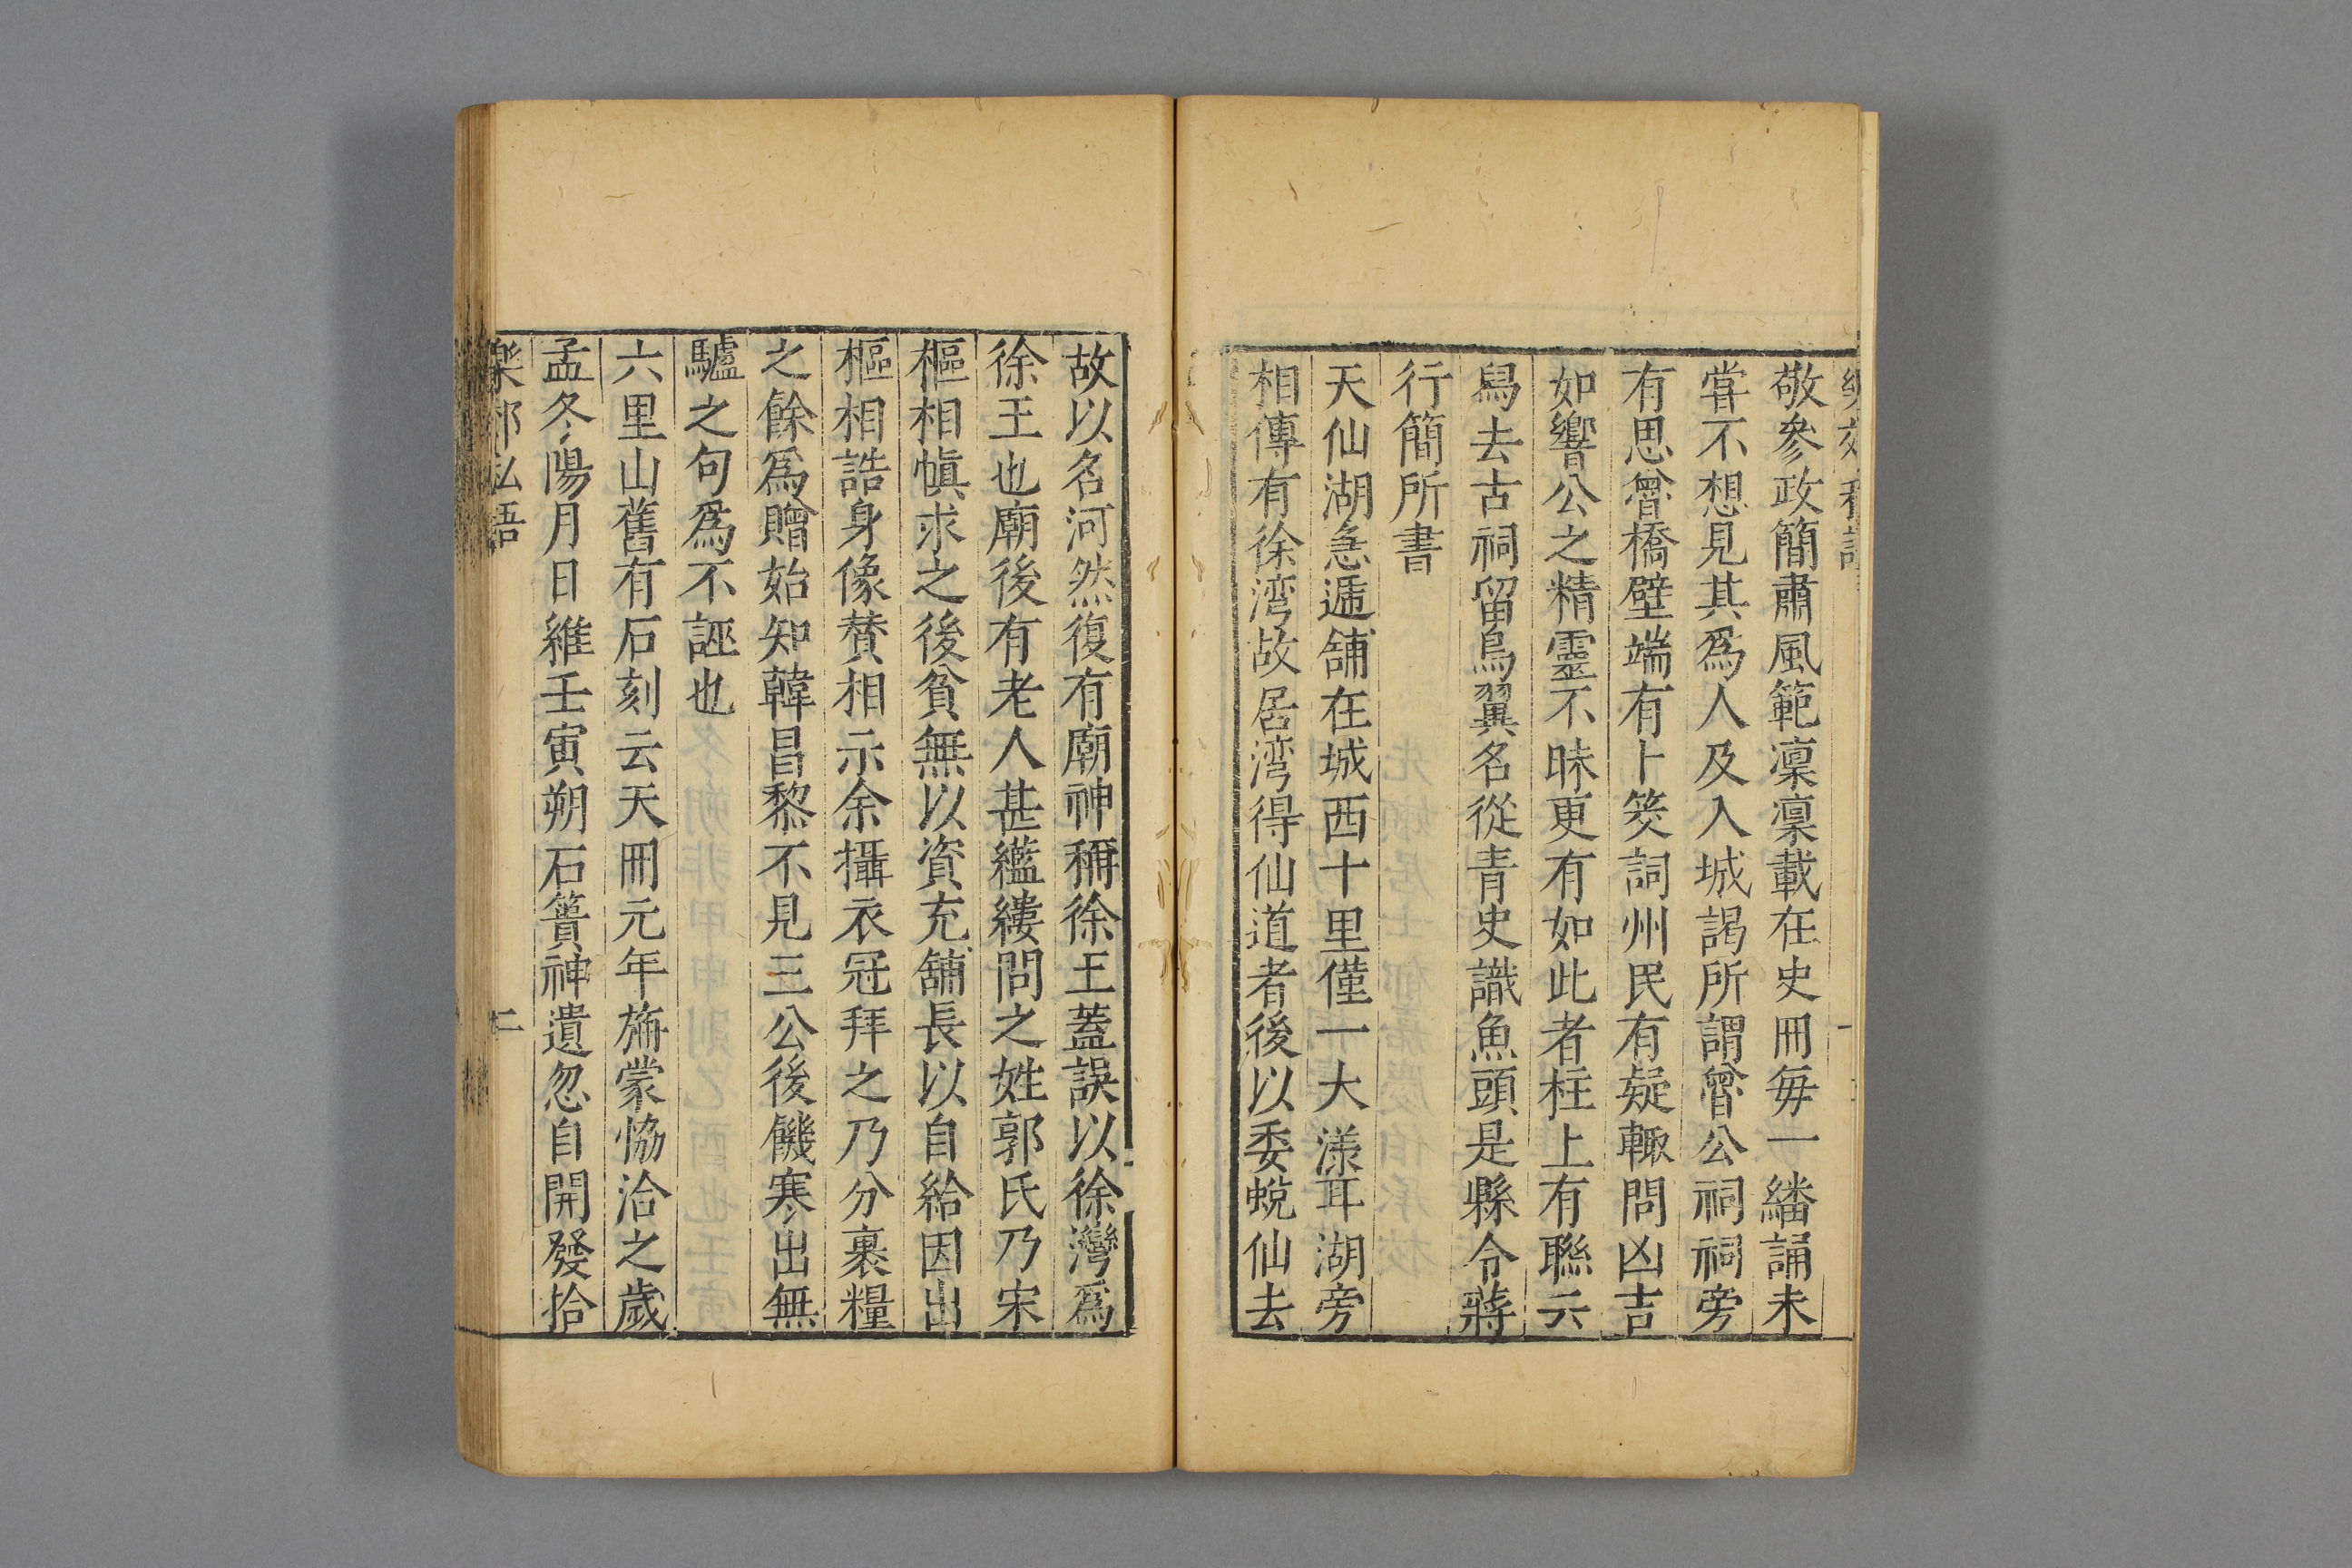 樂郊私語
敬參政簡肅風範凛凛載在史冊每一繙誦未
甞不想見其爲人及入城謁所謂曾公祠祠旁
有思曾橋壁端有卜筊詞州民有疑輙問凶吉
如響公之精靈不昧更有如此者柱上有聯云
舄去古祠留鳥翼名從青史識魚頭是縣令蔣
行簡所書
天仙湖急遞舖在城西十里僅一大漾耳湖旁
相傳有徐湾故居湾得仙道者後以委蛻仙去
故以名河然復有廟神稱徐王蓋誤以徐灣爲
徐王也廟後有老人甚繿縷問之姓郭氏乃宋
樞相愼求之後貧無以資充舖長以自給因出
樞相誥身像賛相示余攝衣冠拜之乃分裹糧
之餘爲贈始知韓昌黎不見三公後饑寒出無
驢之句爲不誣也
六里山舊有石刻云天冊元年旃蒙恊洽之歲
孟冬陽月日維壬寅朔石簣神遺忽自開發拾
樂郊私語
二